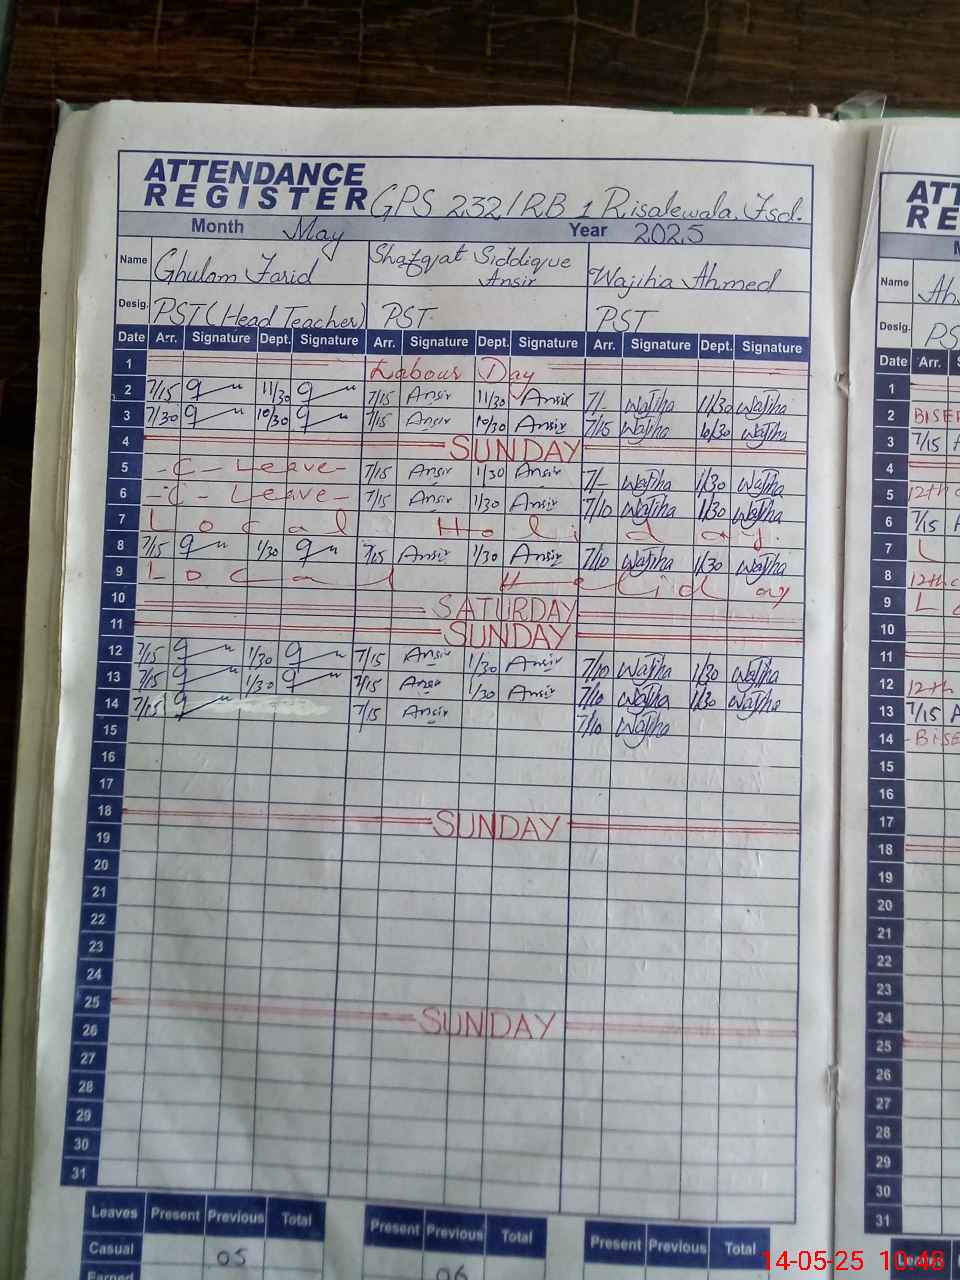 ATTENDANCE
REGISTER GPS 232/RB 1 Risalewala, Fsd.
Month May Year 2025
Name Ghulam Farid Shafqat Siddique Ansir Wajiha Ahmed
Desig. PST (Head Teacher) PST PST
Date Arr. Signature Dept. Signature Arr. Signature Dept. Signature Arr. Signature Dept. Signature
1 Labour Day
2 7/15 11/30 7/15 Ansir 11/30 Ansir 7/- Wajiha 11/30 Wajiha
3 7/30 10/30 7/15 Ansir 10/30 Ansir 7/15 Wajiha 10/30 Wajiha
4 SUNDAY
5 -C- Leave- 7/15 Ansir 1/30 Ansir 7/- Wajiha 1/30 Wajiha
6 -C- Leave- 7/15 Ansir 1/30 Ansir 7/10 Wajiha 1/30 Wajiha
7 Local Holiday.
8 7/15 1/30 7/15 Ansir 1/30 Ansir 7/10 Wajiha 1/30 Wajiha
9 Local Holiday
10 SATURDAY
11 SUNDAY
12 7/15 1/30 7/15 Ansir 1/30 Ansir 7/10 Wajiha 1/30 Wajiha
13 7/15 1/30 7/15 Ansir 1/30 Ansir 7/10 Wajiha 1/30 Wajiha
14 7/15 7/15 Ansir 7/10 Wajiha
15
16
17
18 SUNDAY
19
20
21
22
23
24
25 SUNDAY
26
27
28
29
30
31
Leaves Present Previous Total Present Previous Total Present Previous Total
Casual 05 06
Earned
Name
Desig. PS
Date Arr.
1
2
3 7/15
4
5 12th
6 7/15
7 L
8 12th
9 L
10
11
12 12th
13 7/15
14
15
16
17
18
19
20
21
22
23
24
25
26
27
28
29
30
31
14-05-25 10:48